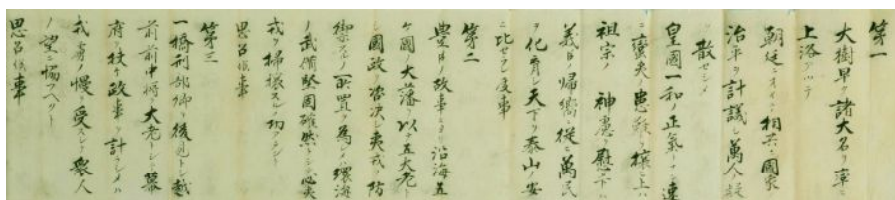 第一
大樹早ク諸大名ヲ率ヒ
上洛シテ
朝廷ニオイテ相共ニ國家ノ
治平ヲ計議シ萬人ノ疑
ヲ散セシメ
皇國一和ノ正氣トナシ速
ニ蠻夷ノ患難ヲ攘ヒ上ハ
祖宗ノ神慮ヲ慰シ下ハ
義臣ノ帰嚮ニ従ヒ萬民
ヲ化育シ天下ヲ泰山ノ安
ニ比セシ度事
第二
豊臣ノ故事ニヨリ沿海五
ケ國ノ大藩以テ五大老ト
シ國政ヲ咨決シ夷戎ヲ防
禦スルノ處置ヲ為シメハ環海
ノ武備堅固確然トシテ必夷
戎ヲ掃攘スルノ功アラント
思召候事
第三
一橋刑部卿ヲ後見トシ越
前前中将ヲ大老トシテ幕
府ヲ扶ケ政事ヲ計ラシメハ
戎虜ノ慢ヲ受スシテ衆人
ノ望ニ愜フヘシト
思召候事